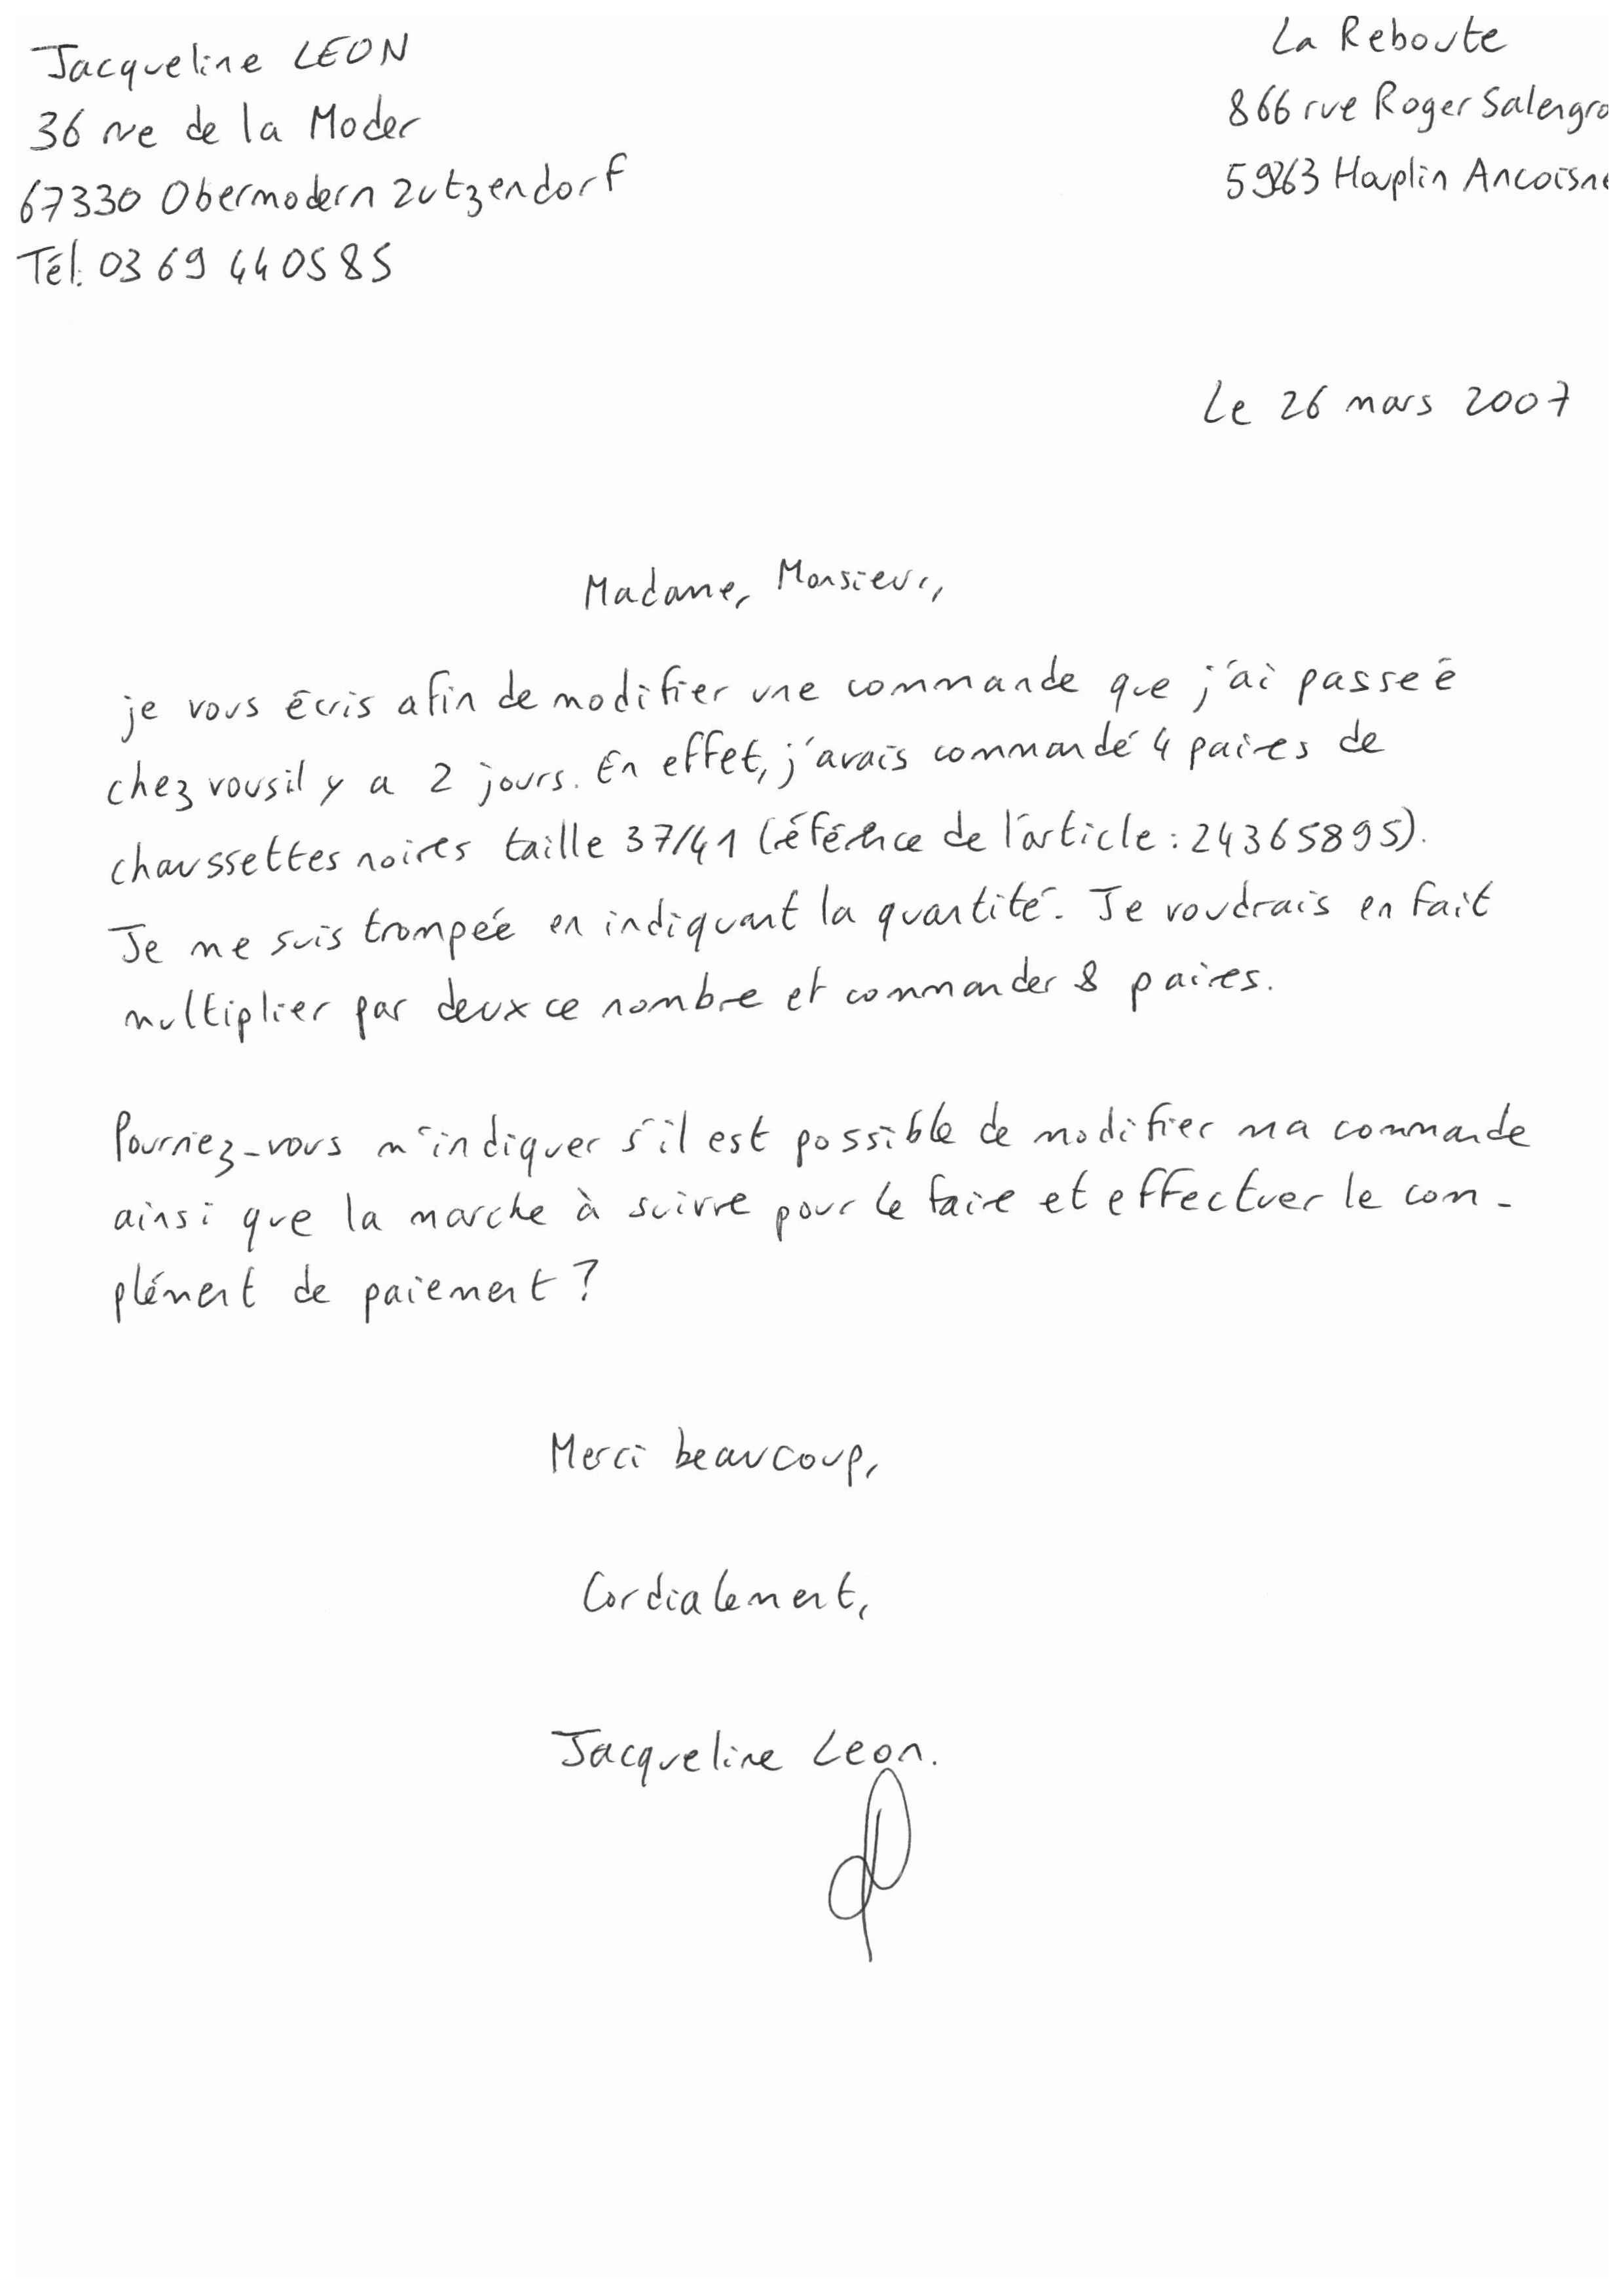 Jacqueline LEON
36 rue de la Moder
67330 Obermodern Zutzendorf
Tél. 03 69 44 05 85
La Reboute
866 rue Roger Salengro
Houplin Ancoisne
Le 26 mars 2007
Madame, Monsieur,
je vous écris afin de modifier une commande que j'ai passée
chez vous il y a 2 jours. En effet, j'avais commandé 4 paires de
chaussettes noires taille 37/41 (référence de l'article : 24365895).
Je me suis trompée en indiquant la quantité. Je voudrais en fait
multiplier par deux ce nombre et commander 8 paires.
Pourriez-vous m'indiquer s'il est possible de modifier ma commande
ainsi que la marche à suivre pour le faire et effectuer le com-
plément de paiement ?
Merci beaucoup,
Cordialement,
Jacqueline Leon.